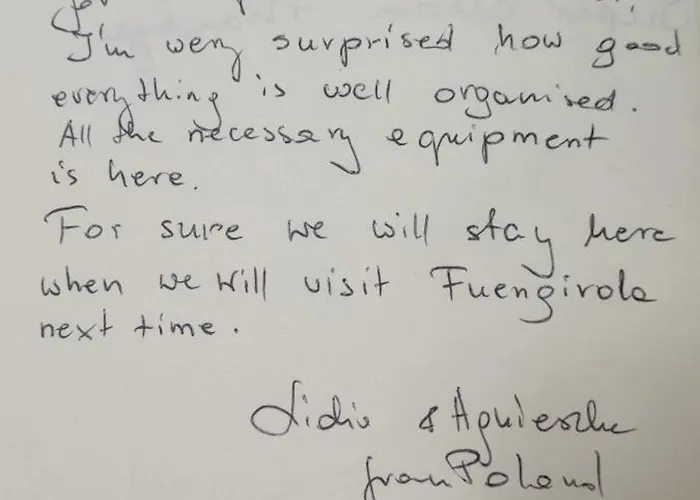 I'm wery surprised how good
everything is well organised.
All the necessary equipment
is here.
For sure we will stay here
when we will visit Fuengirola
next time.
Lidia & Agnieszka
from Poland